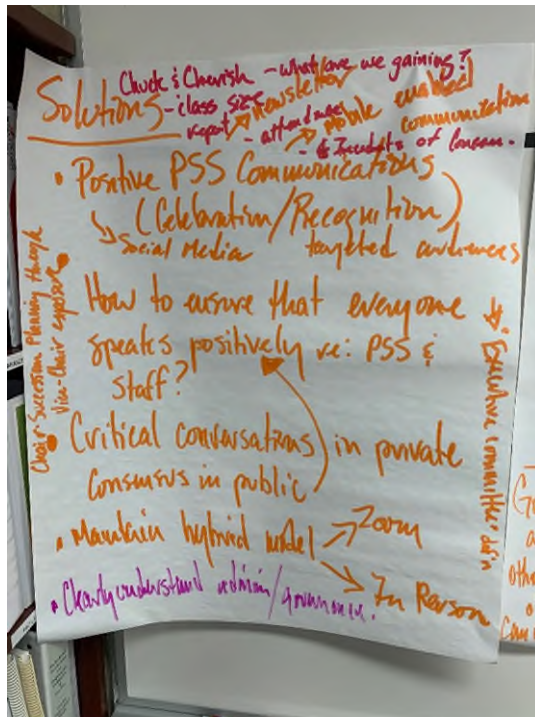 Chuck & Cherish - what are we gaining?
Solutions - class size
newsletter
mobile enabled
communication
report - attendance
- # Incidents of Concern.
• Positive PSS Communications
(Celebration/Recognition)
Social Media targeted audiences
• How to ensure that everyone
speaks positively re: PSS &
staff?
• Critical conversations in private
consensus in public
• Maintain hybrid model
Zoom
In Person
• Clearly understand admin/governance.
Chair-Succession Planning through
Vice-Chair exposure
"Executive committee"